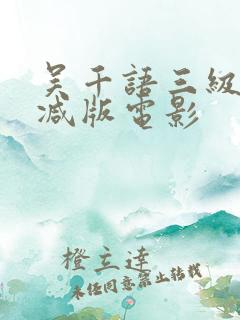 吴千語三級
减版電影
橙立達
未经同意禁止转载